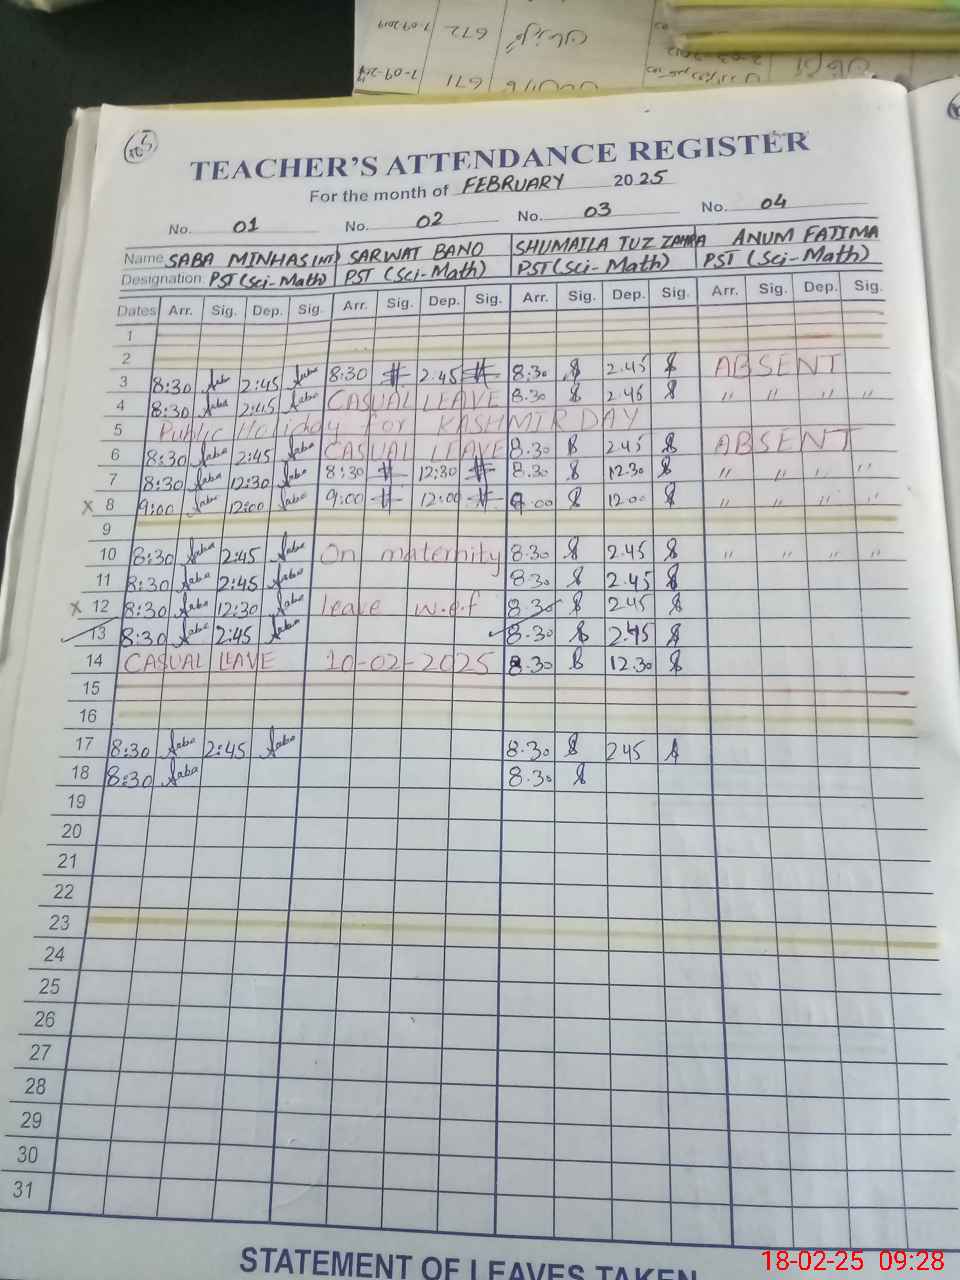 672
671
TEACHER'S ATTENDANCE REGISTER
For the month of FEBRUARY 2025
No. 01 No. 02 No. 03 No. 04
Name SABA MINHAS (INT) SARWAT BANO SHUMAILA TUZ ZAHRA ANUM FATIMA
Designation PST (Sci-Math) PST (Sci-Math) PST (Sci-Math) PST (Sci-Math)
Dates Arr. Sig. Dep. Sig. Arr. Sig. Dep. Sig. Arr. Sig. Dep. Sig. Arr. Sig. Dep. Sig.
1
2
3 8:30 Saba 2:45 Saba 8:30 2.45 8.30 2.45 ABSENT
4 8:30 Saba 2:45 Saba CASUAL LEAVE 8.30 2.45 " " " "
5 Public Holiday for KASHMIR DAY
6 8:30 Saba 2:45 Saba CASUAL LEAVE 8.30 2.45 ABSENT
7 8:30 Saba 12:30 Saba 8:30 12:30 8.30 12.30 " " " "
x 8 9:00 Saba 12:00 Saba 9:00 12:00 9.00 12.00 " " " "
9
10 8:30 Saba 2:45 Saba On maternity 8.30 2.45 " " " "
11 8:30 Saba 2:45 Saba 8.30 2.45
x 12 8:30 Saba 12:30 Saba leave w.e.f 8.30 245
13 8:30 Saba 2:45 Saba 8.30 2.45
14 CASUAL LEAVE 10-02-2025 8.30 12.30
15
16
17 8:30 Saba 2:45 Saba 8.30 245
18 8:30 Saba 8.30
19
20
21
22
23
24
25
26
27
28
29
30
31
STATEMENT OF LEAVES TAKEN
18-02-25 09:28